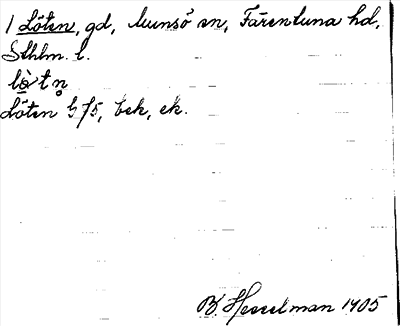 1 Löten, gd, Munsö sn, Färentuna hd,
Sthlm. l.
Löten ½/5, bek, ek.
B. Hesselman 1905